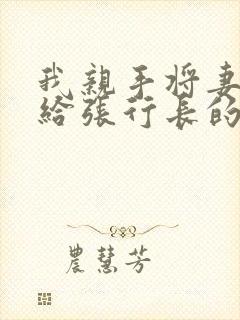 我親手将妻
給張行長的
農慧芳